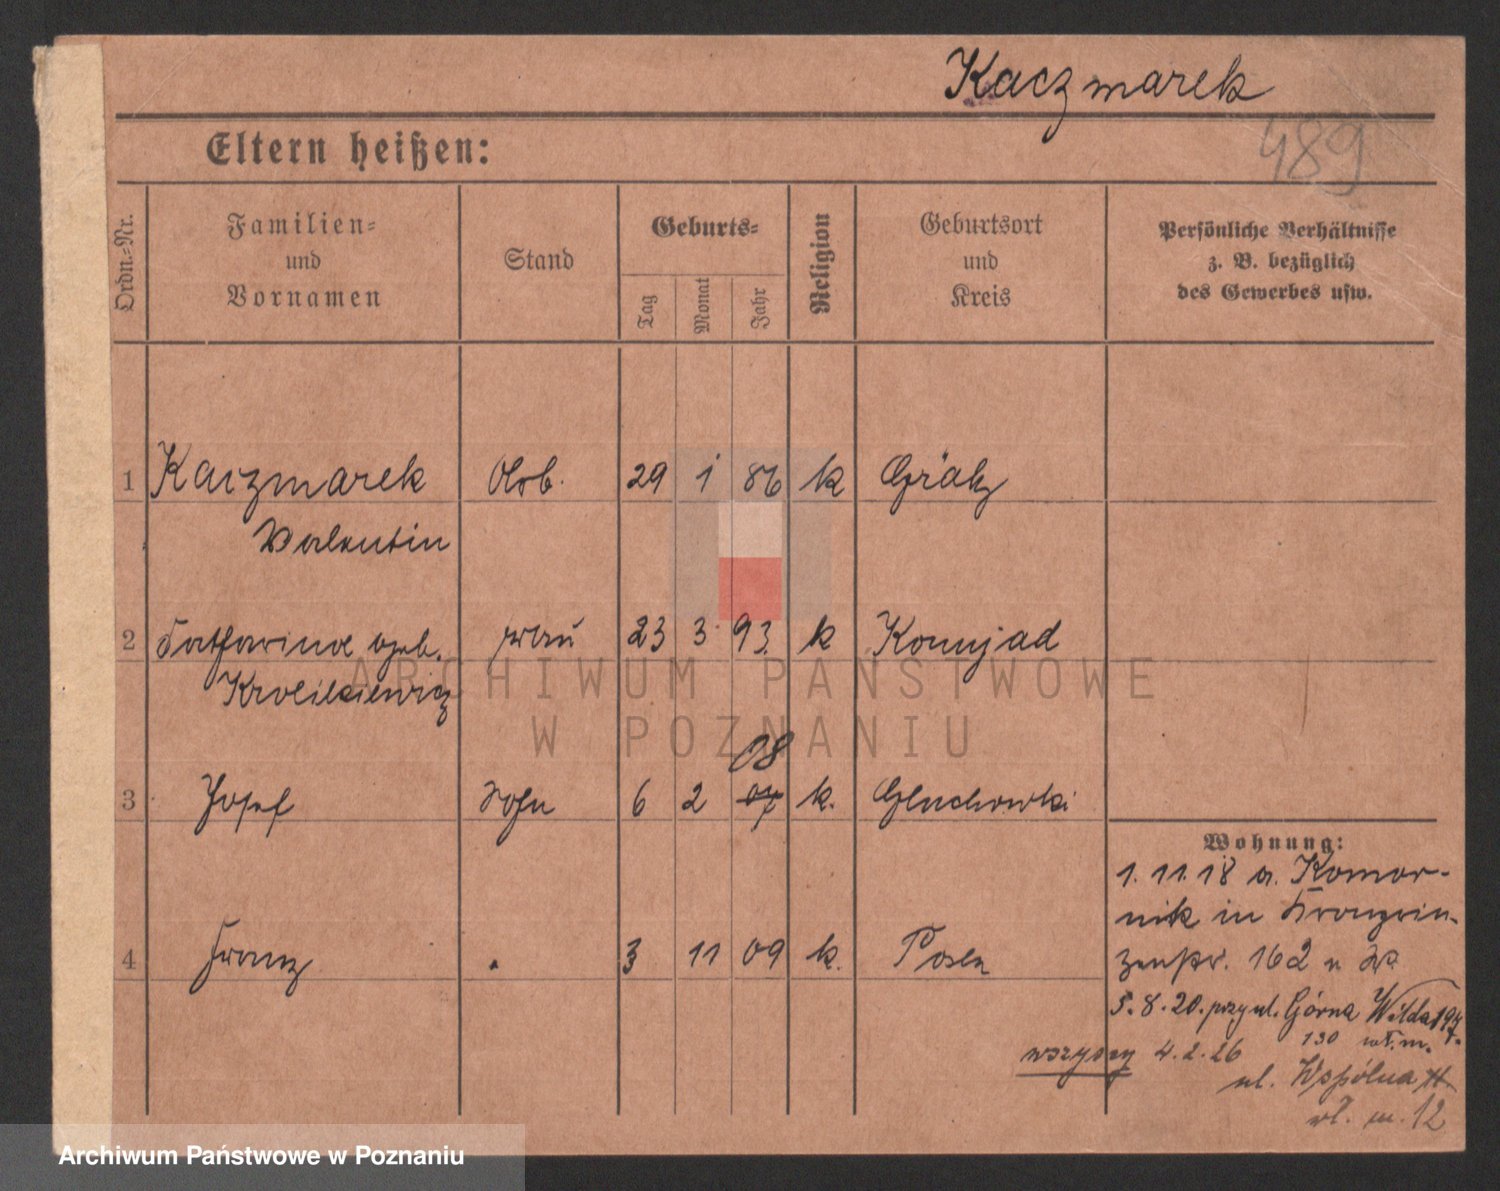 Kaczmarek
489
Eltern heißen:
Ordn.-Nr.
Familien- und Vornamen
Stand
Geburts-
Tag
Monat
Jahr
Religion
Geburtsort und Kreis
Persönliche Verhältnisse
z. B. bezüglich
des Gewerbes usw.
1 Kaczmarek Arb. 29 1 86 k Grätz
Valentin
2 Katharina geb. Frau 23 3 93 k Konnjad
Krolikiewicz
08
3 Josef Sohn 6 2 07 k. Gluchowki
Wohnung:
1.11.18 a. Komor-
nik in Kronprin-
4 Franz 3 11 09 k. Posen
zenstr. 162
5.8.20. przy ul. Górna Wilda
130 wł. m.
wszyscy 4.2.26
ul. Wspólna
wł. m. 12
ARCHIWUM PAŃSTWOWE
W POZNANIU
Archiwum Państwowe w Poznaniu